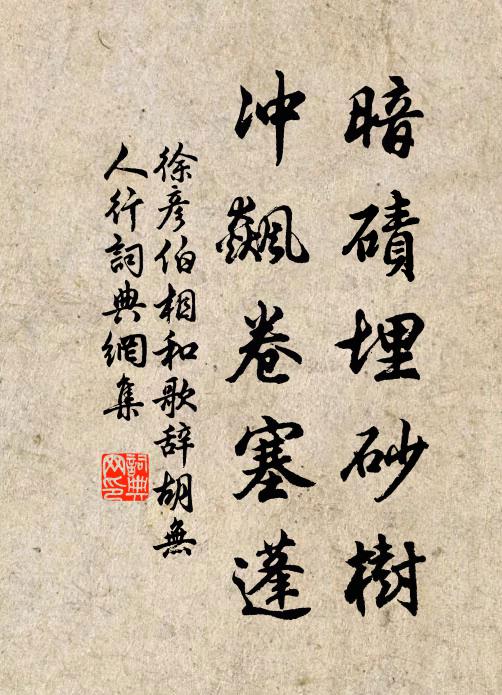 暗磧埋砂樹
冲飆卷塞蓬
徐彦伯相和歌辞胡無
人行詞典網集
詞典
网印